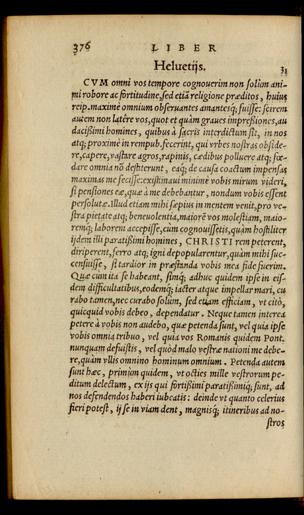 376 LIBER
Heluetijs. 31
CVM omni vos tempore cognouerim non solùm ani-
mi robore ac fortitudine, sed etiã religione præditos, huius
reip. maximè omnium obseruantes amantesq́; fuisse: scirem
autem non latêre vos, quot et quàm graues impressiones, au
dacissimi homines, quibus à sacris interdictum sit, in nos
atq; proximè in rempub. fecerint, qui vrbes nostras obside-
re, capere, vastare agros, rapinis, cædibus polluere atq; fœ-
dare omnia nõ destiterunt, eaq; de causa coactum impensas
maximas me fecisse: existimaui minimè vobis mirum videri,
si pensiones eæ, quæ à me debebantur, nondum vobis essent
persolutæ. Illud etiam mihi sæpius in mentem venit, pro ve-
stra pietate atq; beneuolentia, maiorẽ vos molestiam, maio-
remq́; laborem accepisse, cum cognouissetis, quàm hostiliter
ijdem illi paratissimi homines, CHRISTI rem peterent,
diriperent, ferro atq; igni depopularentur, quàm mihi suc-
censuisse, si tardior in præstanda vobis mea fide fuerim.
Quæ cum ita se habeant, simq́; adhuc quidem ipse in eis-
dem difficultatibus, eodemq́; iacter atque impellar mari, cu
rabo tamen, nec curabo solùm, sed etiam efficiam, vt citò,
quicquid vobis debeo, dependatur. Neque tamen interea
petere à vobis non audebo, quæ petenda sunt, vel quia ipse
vobis omnia tribuo, vel quia vos Romanis quidem Pont.
nunquam defuistis, vel quòd malo vestræ nationi me debe-
re, quàm vllis omnino hominum omnium. Petenda autem
sunt hæc, primùm quidem, vt octies mille vestrorum pe-
ditum delectum, ex ijs qui fortissimi paratissimiq́; sunt, ad
nos defendendos haberi iubeatis: deinde vt quanto celerius
fieri potest, ij se in viam dent, magnisq́; itineribus ad no-
stros